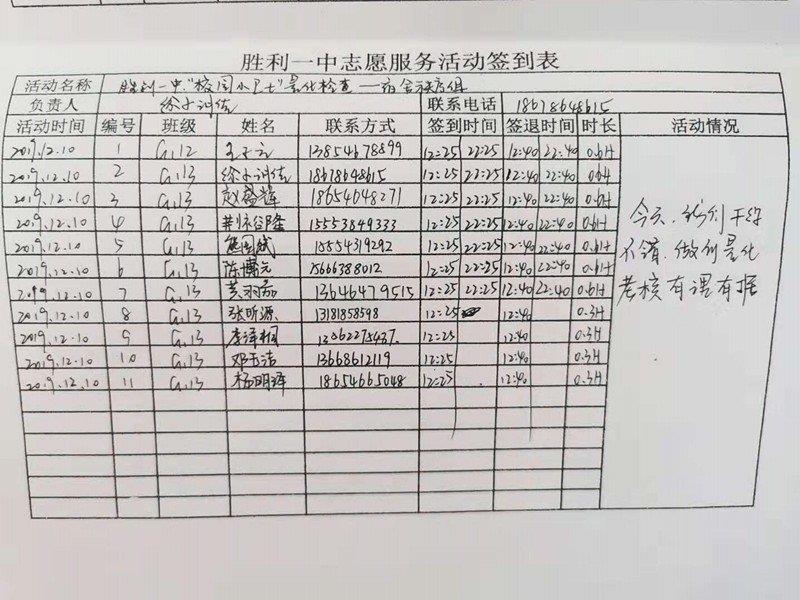 胜利一中志愿服务活动签到表
活动名称 胜利一中"校园小卫士"量化检查——宿舍秩序组
负责人 联系电话 18678648615
活动时间 编号 班级 姓名 联系方式 签到时间 签退时间 时长 活动情况
2019.12.10 1 G.12 13854678899 12:25 22:25 12:40 22:40 0.6H
2019.12.10 2 G.13 18678648615 12:25 22:25 12:40 22:40 0.6H
2019.12.10 3 G.13 赵盛辉 18654648271 12:25 22:25 12:40 22:40 0.6H
2019.12.10 4 G.13 15553849333 12:25 22:25 12:40 22:40 0.6H
2019.12.10 5 G.13 15554319292 12:25 22:25 12:40 22:40 0.6H
2019.12.10 6 G.13 陈博元 15666388012 12:25 22:25 12:40 22:40 0.6H
2019.12.10 7 G.13 黄羽茹 13646479515 12:25 22:25 12:40 22:40 0.6H
2019.12.10 8 G.13 张昕源 13181858598 12:25 12:40 0.3H
2019.12.10 9 G.13 李泽桐 12:25 12:40 0.3H
2019.12.10 10 G.13 邓玉洁 13668612119 12:25 12:40 0.3H
2019.12.10 11 G.13 杨明珲 18654665048 12:25 12:40 0.3H
今天,我们干得
不错,做到量化
考核有理有据